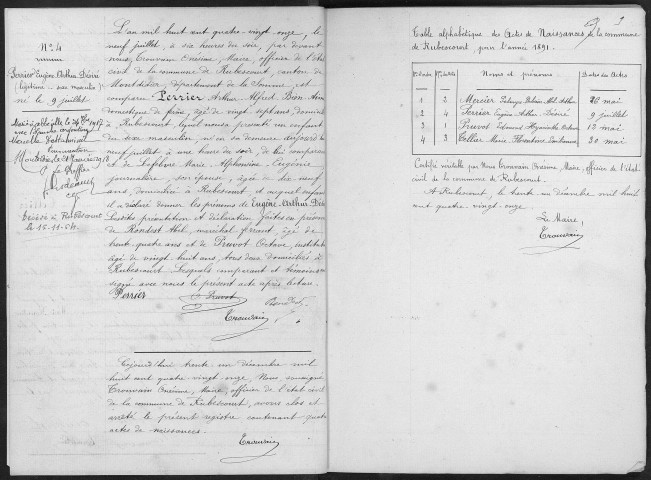 N° 4
Perrier Eugène Arthur Désiré
(légitime - sexe masculin)
né le 9 juillet
décédé à Rubescourt
le 15-11-54
L'an mil huit cent quatre-vingt onze, le
neuf juillet, à six heures du soir, par devant
nous, Trouvain Onésime, Maire, officier de l'état
civil de la commune de Rubescourt, canton de
Montdidier, département de la Somme, est
comparu Perrier Arthur Alfred Bien Aimé
domestique de ferme, âgé de vingt sept ans, domicilié
à Rubescourt, lequel nous a présenté un enfant
du sexe masculin, né en sa demeure aujourd'hui
neuf juillet, à une heure du soir, de lui comparant
et de Lefebvre Marie Alphonsine Eugénie
journalière, son épouse, âgée de dix neuf
ans, domiciliée à Rubescourt, et auquel enfant
il a déclaré donner les prénoms de Eugène Arthur Désiré
Lesdites présentation et déclaration faites en présence
de Abel, maréchal ferrant, âgé de
trente quatre ans et de Pruvot Octave, instituteur
âgé de vingt huit ans, tous deux domiciliés à
Rubescourt. Lesquels comparant et témoins ont
signé avec nous le présent acte après lecture.
Perrier
O. Pruvot
Trouvain
Aujourd'hui trente un décembre mil
huit cent quatre vingt onze, Nous soussigné
Trouvain Onésime, Maire, officier de l'état civil
de la commune de Rubescourt, avons clos et
arrêté le présent registre contenant quatre
actes de naissances.
Trouvain
3
Table alphabétique des Actes de Naissances de la commune
de Rubescourt, pour l'année 1891.
Noms et prénoms Dates des Actes
1 2 Mercier 26 mai
2 4 Perrier Eugène Arthur Désiré 9 juillet
3 1 Pruvot Edmond Hyacinthe 12 mai
4 3 Tellier Marie Florentine 30 mai
Certifié véritable par Nous Trouvain Onésime, Maire, officier de l'état
civil de la commune de Rubescourt.
A Rubescourt, le trente un décembre mil huit
cent quatre-vingt onze.
Le Maire,
Trouvain